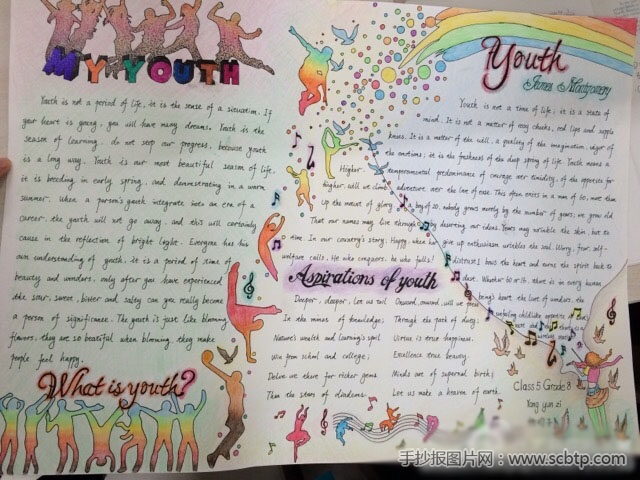 MY YOUTH
Youth is not a period of life, it is the sense of a situation. If
your heart is young, you will have many dreams. Youth is the
season of learning, do not stop our progress, because youth
is a long way. Youth is our most beautiful season of life,
it is breeding in early spring, and demonstrating in a warm
summer. When a person's youth integrate into an era of a
career, the youth will not go away, and this will certainly
cause in the reflection of bright light. Everyone has his
own understanding of youth, it is a period of time of
beauty and wonders, only after you have experienced
the sour, sweet, bitter and salty can you really become
a person of significance. The youth is just like blooming
flowers, they are so beatiful when blooming, they make
people feel happy.
What is youth?
Youth
James Montgomery
Youth is not a time of life; it is a state of
mind. It is not a matter of rosy cheeks, red lips and supple
knees. It is a matter of the will, a quality of the imagination, vigor of
the emotions; it is the freshness of the deep spring of life. Youth means a
temperamental predominance of courage over timidity, of the appetite for
adventure over the love of ease. This often exits in a man of 60, more than
a boy of 20, nobody grows merely by the number of years; we grow old
by deserting our ideas. Years may wrinkle the skin, but to
give up enthusiasm wrinkles the soul. Worry, fear, self-
distrust; bows the heart and turns the spirit back to
dust. Whether 60 or 16, there is in every human
being's heart the love of wonders, the
unfailing childlike appetite
Higher,
higher, will we climb
Up the mount of glory
That our names may live through
time. In our country's story; Happy, when
welfare calls, He who conquers, he who falls!
Aspirations of youth
Deeper, deeper, Let us toil
In the mines of knowledge;
Nature's wealth and learning's spoil
Win from school and college;
Delve we there for richer gems
Than the stars of diadems.
Onward, onward, will we press
Through the path of duty;
Virtue is true happiness,
Excellence true beauty.
Minds are of supernal birth;
Let us make a heaven of earth.
Class 5 Grade 8
Yang yun zi
手抄报图片网：www.scbtp.com